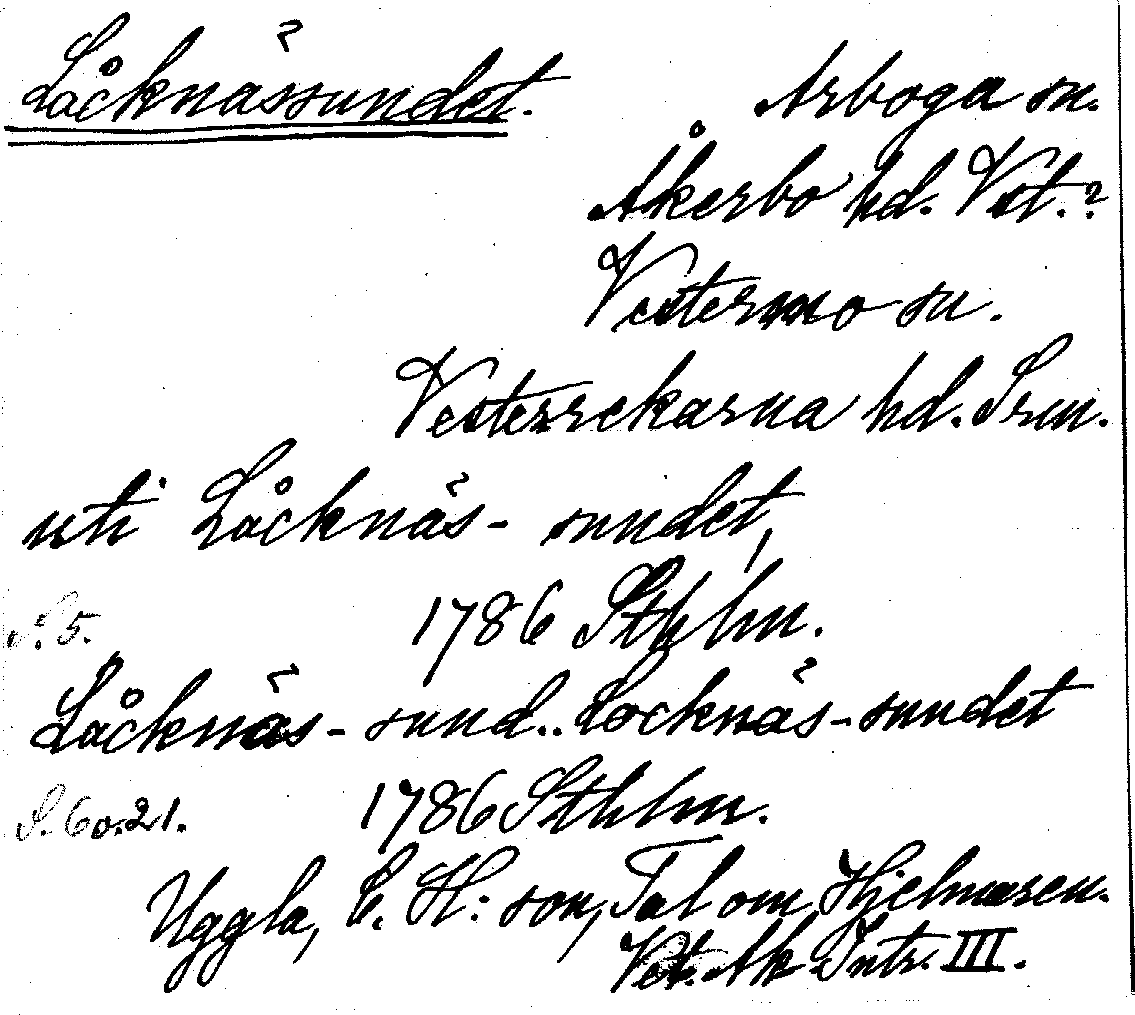 Låcknässundet.
Arboga sn.
Åkerbo hd. Vst.?
Vestermo sn.
Vesterrekarna hd. Srm.
uti Låcknäs- sundet,
S. 5. 1786 Sthlm.
Låcknäs- sund.. Locknäs-sundet
S. 6 o. 21. 1786 Sthlm.
Uggla, C. H:son, Tal om Hjelmaren.
Vet. Ak. Intr. III.